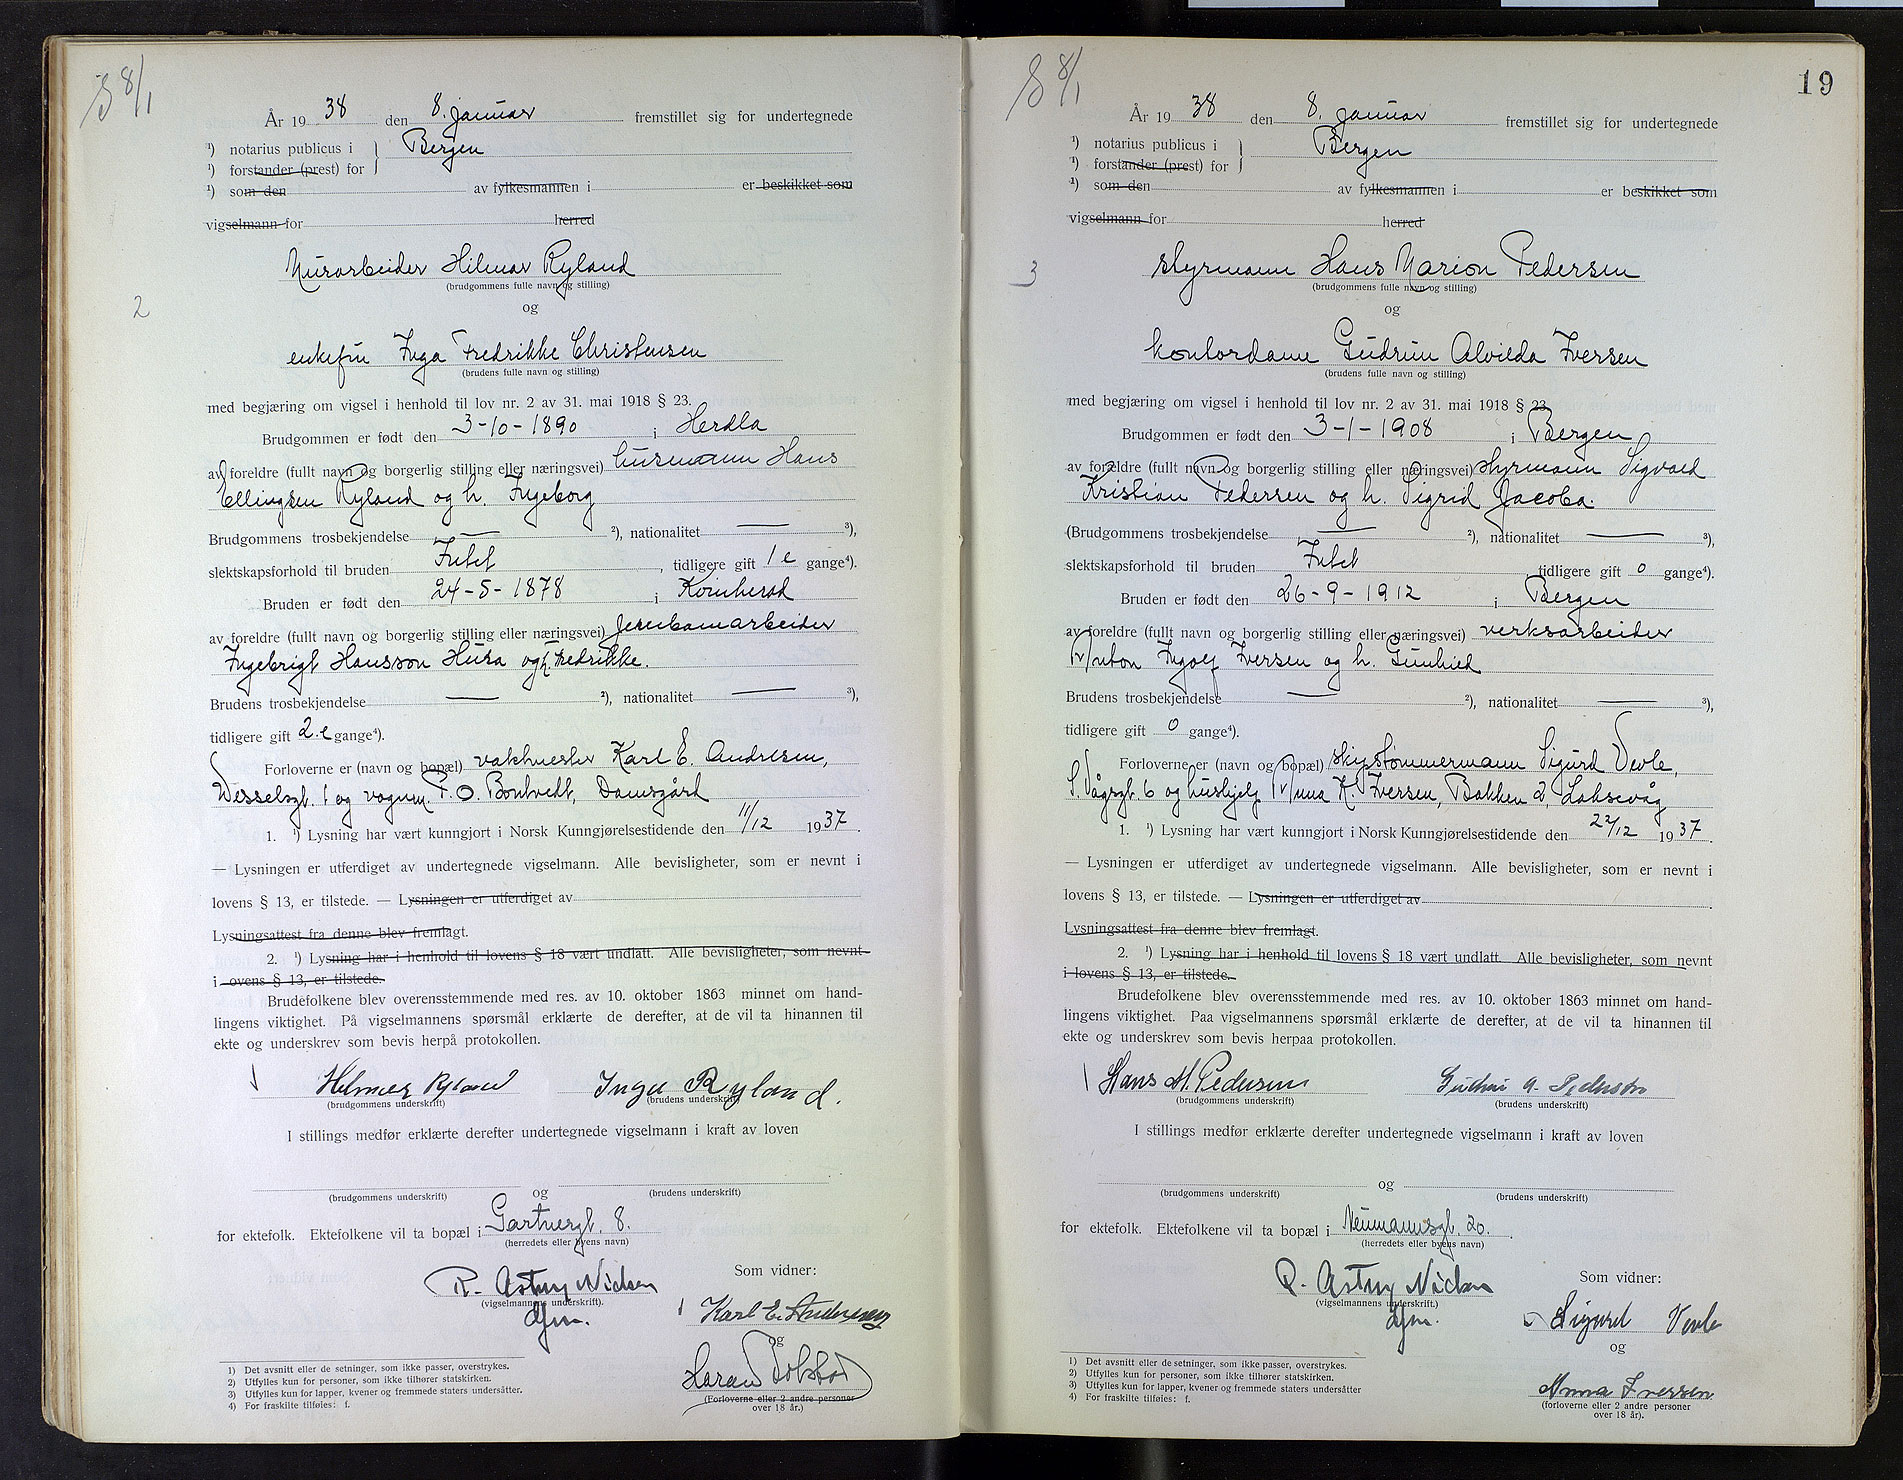 8/1
År 19 38 den 8. januar fremstillet sig for undertegnede
¹) notarius publicus i Bergen
¹) forstander (prest) for
¹) som den av fylkesmannen i er beskikket som
vigselmann for herred
Murarbeider Hilmar Ryland
(brudgommens fulle navn og stilling)
og
2
enkefru Inga Fredrikke Christensen
(brudens fulle navn og stilling)
med begjæring om vigsel i henhold til lov nr. 2 av 31. mai 1918 § 23.
Brudgommen er født den 3-10-1890 i Herdla
av foreldre (fullt navn og borgerlig stilling eller næringsvei) husmann Hans
Ellingsen Ryland og h. Ingeborg
Brudgommens trosbekjendelse — ²), nationalitet — ³),
slektskapsforhold til bruden Intet, tidligere gift 1 e gange⁴).
Bruden er født den 24-5-1878 i Kvinherad
av foreldre (fullt navn og borgerlig stilling eller næringsvei) jernbanearbeider
Ingebrigt Hansson Husa og h. Fredrikke.
Brudens trosbekjendelse — ²), nationalitet — ³),
tidligere gift 2.e gange⁴).
Forloverne er (navn og bopæl) vaktmester Karl E. Andresen,
Wesselsgt. 1 og vognm. P. O. Bontvedt, Damsgård
1. ¹) Lysning har vært kunngjort i Norsk Kunngjørelsestidende den 11/12 19 37.
— Lysningen er utferdiget av undertegnede vigselmann. Alle bevisligheter, som er nevnt i
lovens § 13, er tilstede. — Lysningen er utferdiget av
Lysningsattest fra denne blev fremlagt.
2. ¹) Lysning har i henhold til lovens § 18 vært undlatt. Alle bevisligheter, som nevnt
i lovens § 13, er tilstede.
Brudefolkene blev overensstemmende med res. av 10. oktober 1863 minnet om hand-
lingens viktighet. På vigselmannens spørsmål erklærte de derefter, at de vil ta hinannen til
ekte og underskrev som bevis herpå protokollen.
Hilmar Ryland Inga Ryland.
(brudgommens underskrift) (brudens underskrift)
I stillings medfør erklærte derefter undertegnede vigselmann i kraft av loven
og
(brudgommens underskrift) (brudens underskrift)
for ektefolk. Ektefolkene vil ta bopæl i Gartnergt. 8.
(herredets eller byens navn)
Som vidner:
R. Astrup Nielsen
(vigselmannens underskrift).
Karl E. Andresen
og
(Forloverne eller 2 andre personer
over 18 år.)
1) Det avsnitt eller de setninger, som ikke passer, overstrykes.
2) Utfylles kun for personer, som ikke tilhører statskirken.
3) Utfylles kun for lapper, kvener og fremmede staters undersåtter.
4) For fraskilte tilføles: f.
8/1
19
År 19 38 den 8. januar fremstillet sig for undertegnede
¹) notarius publicus i Bergen
¹) forstander (prest) for
¹) som den av fylkesmannen i er beskikket som
vigselmann for herred
3
styrmann Hans Marion Pedersen
(brudgommens fulle navn og stilling)
og
kontordame Gudrun Alvilda Iversen
(brudens fulle navn og stilling)
med begjæring om vigsel i henhold til lov nr. 2 av 31. mai 1918 § 23.
Brudgommen er født den 3-1-1908 i Bergen
av foreldre (fullt navn og borgerlig stilling eller næringsvei) styrmann Sigvald
Kristian Pedersen og h. Sigrid Jacoba.
(Brudgommens trosbekjendelse — ²), nationalitet — ³),
slektskapsforhold til bruden Intet, tidligere gift 0 gange⁴).
Bruden er født den 26-9-1912 i Bergen
av foreldre (fullt navn og borgerlig stilling eller næringsvei) verksarbeider
Anton Ingolf Iversen og h. Gunhild
Brudens trosbekjendelse — ²), nationalitet — ³),
tidligere gift 0 gange⁴).
Forloverne er (navn og bopæl) skipstømmermann Sigurd Vevle,
S. Vågsgt. 6 og hushjelp Anna K. Iversen, Bakken 2. Laksevåg
1. ¹) Lysning har vært kunngjort i Norsk Kunngjørelsestidende den 22/12 19 37.
— Lysningen er utferdiget av undertegnede vigselmann. Alle bevisligheter, som er nevnt i
lovens § 13, er tilstede. — Lysningen er utferdiget av
Lysningsattest fra denne blev fremlagt.
2. ¹) Lysning har i henhold til lovens § 18 vært undlatt. Alle bevisligheter, som nevnt
i lovens § 13, er tilstede.
Brudefolkene blev overensstemmende med res. av 10. oktober 1863 minnet om hand-
lingens viktighet. Paa vigselmannens spørsmål erklærte de derefter, at de vil ta hinannen til
ekte og underskrev som bevis herpaa protokollen.
Hans M. Pedersen Gudrun A. Pedersen
(brudgommens underskrift) (brudens underskrift)
I stillings medfør erklærte derefter undertegnede vigselmann i kraft av loven
og
(brudgommens underskrift) (brudens underskrift)
for ektefolk. Ektefolkene vil ta bopæl i Neumannsgt. 20.
(herredets eller byens navn)
Som vidner:
R. Astrup Nielsen
(vigselmannens underskrift.)
Sigurd Vevle
og
Anna Iversen
(forloverne eller 2 andre personer
over 18 år).
1) Det avsnitt eller de setninger, som ikke passer, overstrykes.
2) Utfylles kun for personer, som ikke tilhører statskirken.
3) Utfylles kun for lapper, kvener og fremmede staters undersåtter
4) For fraskilte tilføles: f.